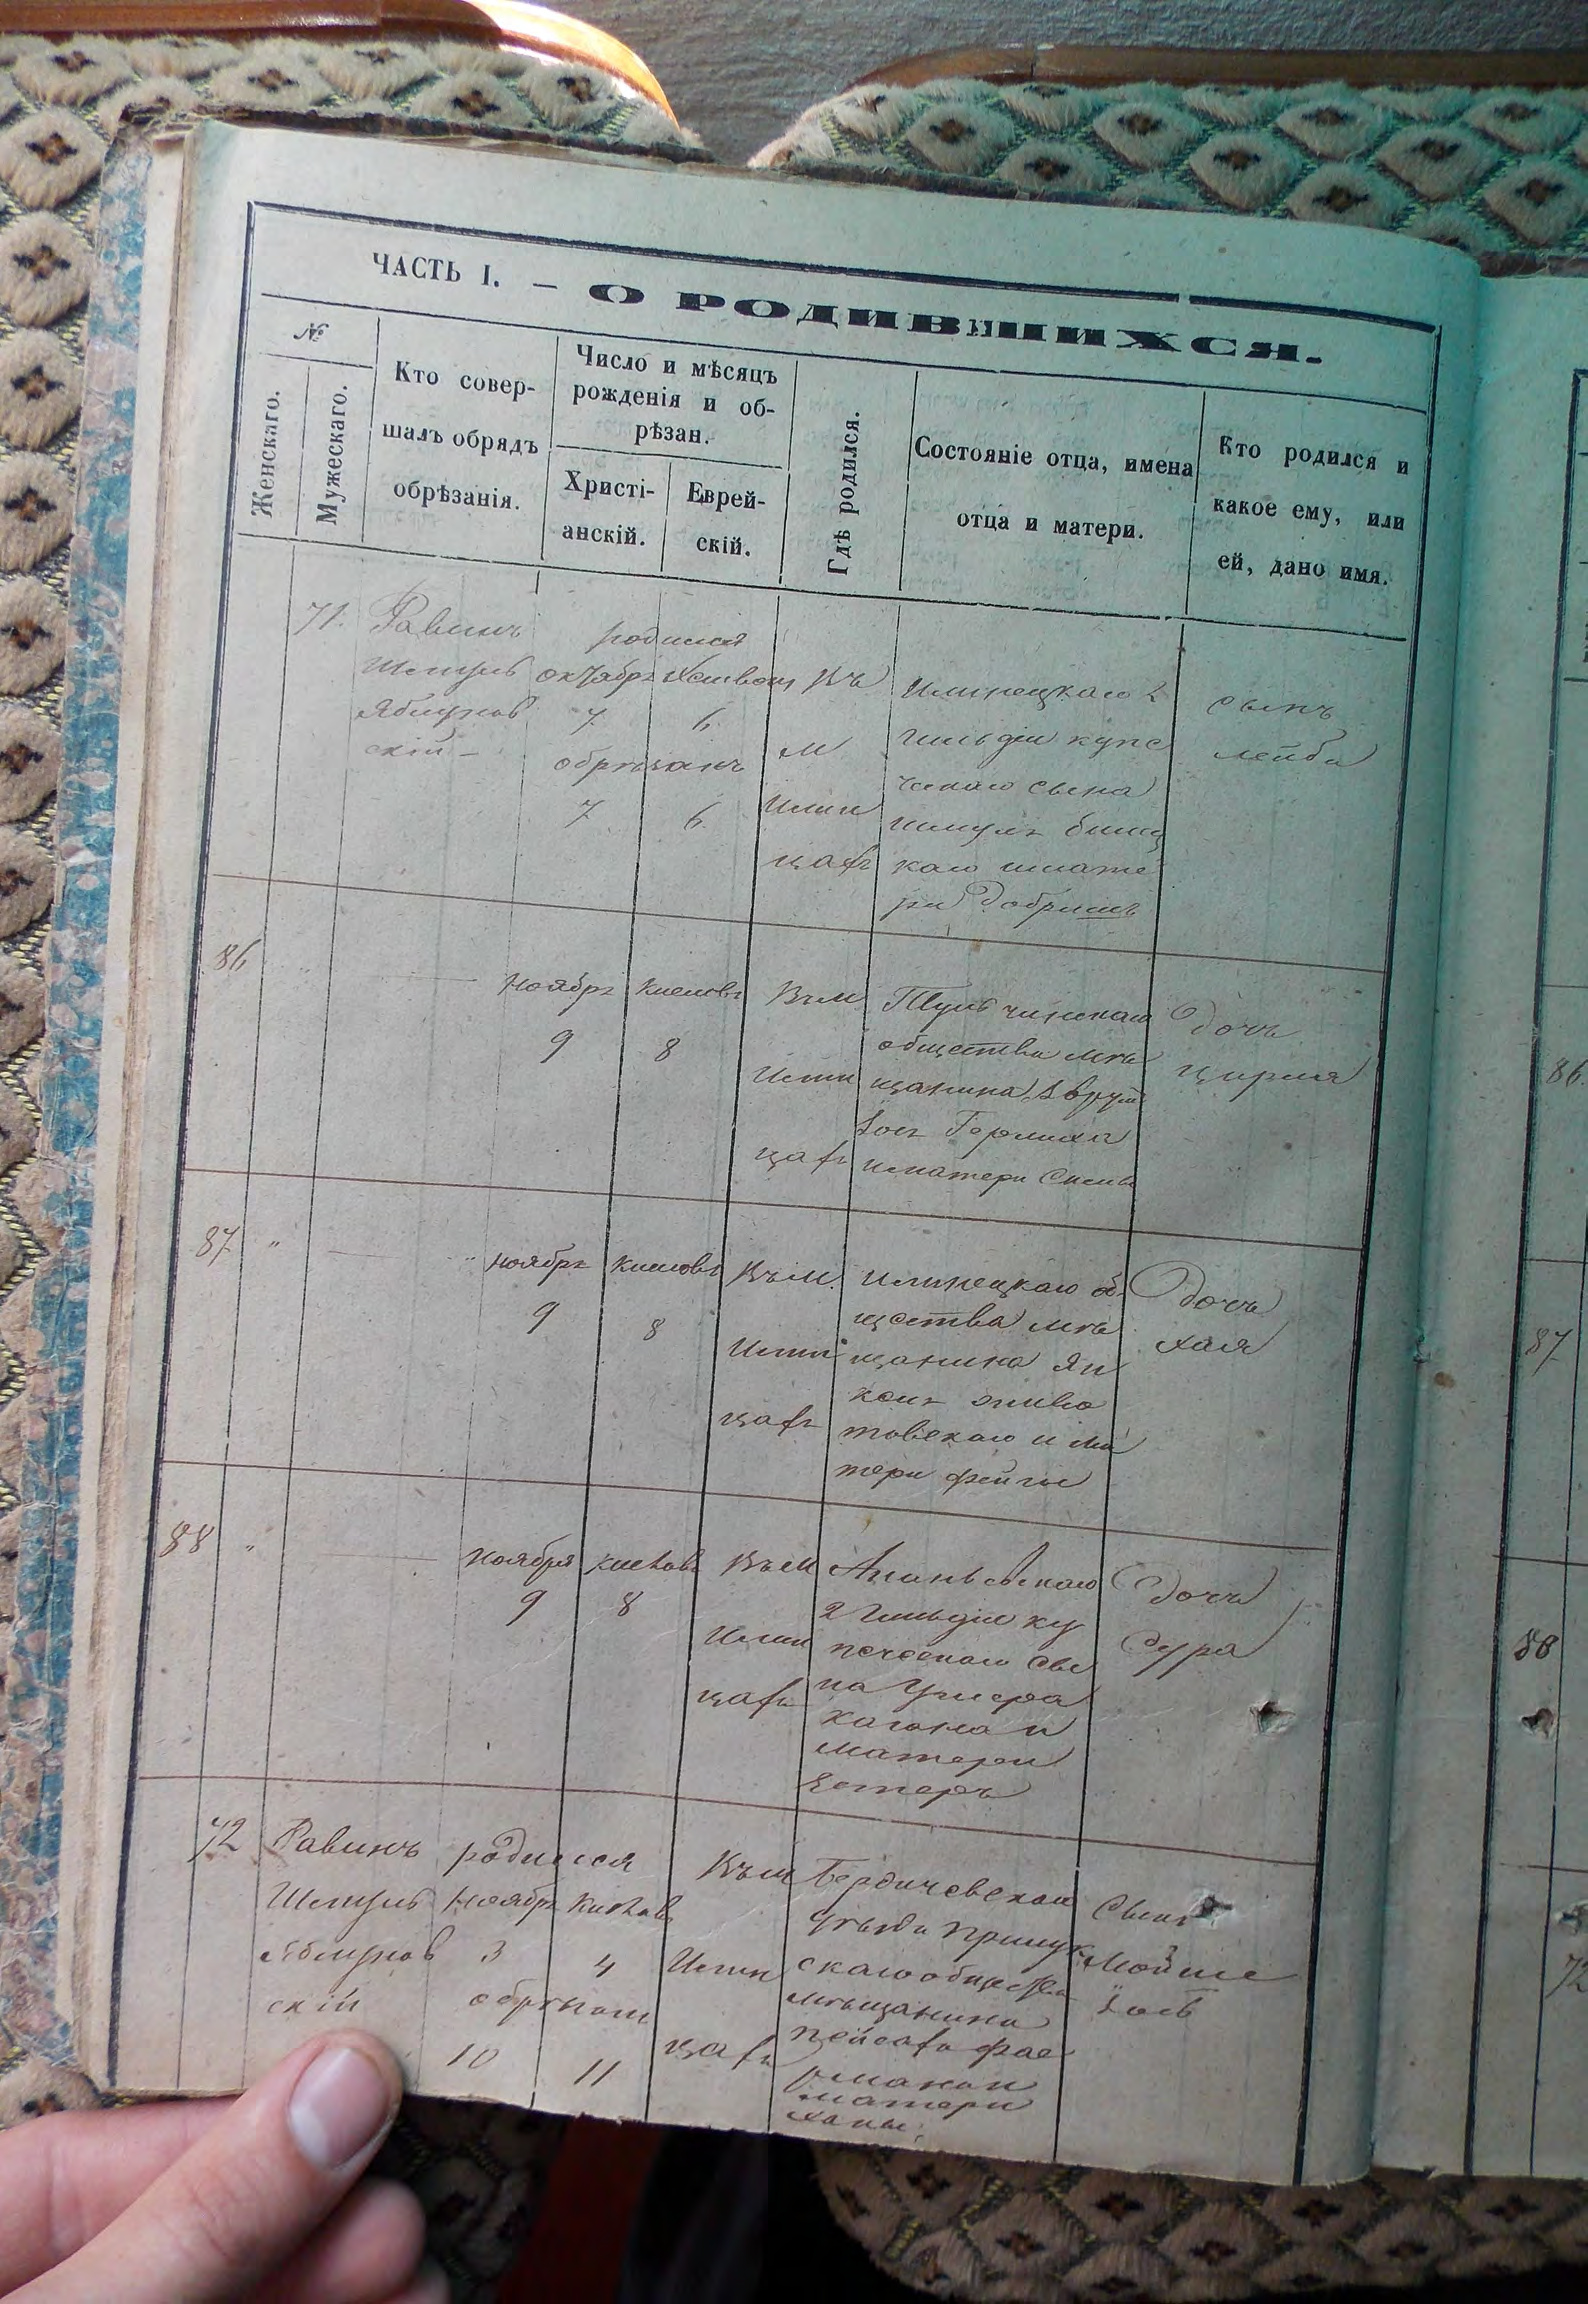 ЧАСТЬ I. — О РОДИВШИХСЯ.
№
Женскаго.
Мужескаго.
Кто совер-
шалъ обрядъ
обрѣзанія.
Число и мѣсяцъ
рожденія и об-
рѣзан.
Христі-
анскій.
Еврей-
скій.
Гдѣ родился.
Состояніе отца, имена
отца и матери.
Кто родился и
какое ему, или
ей, дано имя.
71.
Равинъ
Шмуль
Яблунов
скій —
родился
октябр
7 6
обрѣзанъ
7 6
Въ
м
Илин
цахъ
Илинецкаго 2
гильдіи купе
ческаго сына
Шмуля
каго и мате
ри Добришъ
сынъ
Лейба
86
Ноябр Кислов
9 8
Въ м
Илин
цахъ
Тульчинскаго
общества мѣ
щанина
и матери
Дочь
Цирля
87 "
Ноябр Кислов
9 8
Въ м.
Илин
цахъ
Илинецкаго об
щества мѣ
щанина Ян
келя Живо
товскаго и ма
тери Фейги
Дочь
Хая
88 "
Ноября Кислов
9 8
Въ м
Илин
цахъ
Ананьевскаго
2 гильдіи ку
печескаго сы
на Ушера
Кагона и
матери
Естеръ
Дочь
Сура
72
Равинъ
Шмуль
Яблунов
скій
родился
Ноябр Кислов
3 4
обрѣзан
10 11
Въ м
Илин
цахъ
Бердичевскаго
уѣзда
скаго общества
мѣщанина
Пейсаха
матери
Ханы
Сынъ
Мойше
86
87
88
72